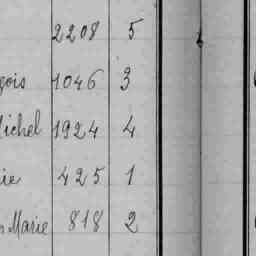 2208 5
çois 1046 3
Michel 1924 4
rie 425 1
Marie 818 2